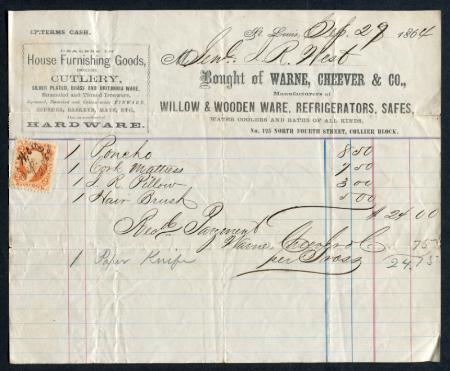 TERMS CASH.
St. Louis, Sep. 29 1864
DEALERS IN
House Furnishing Goods,
CUTLERY,
SILVER PLATED, BRASS AND BRITANNIA WARE,
Enameled and Tinned Ironware,
Japanned, Stamped and TINWARE
BASKETS, MATS, ETC.
HARDWARE.
M Genl. J. R. West
Bought of WARNE, CHEEVER & CO.,
Manufacturers of
WILLOW & WOODEN WARE, REFRIGERATORS, SAFES,
WATER COOLERS AND BATHS OF ALL KINDS,
No. 125 NORTH FOURTH STREET, COLLIER BLOCK.
1 Poncho 8 50
1 Cork Mattress 7 50
1 I. R. Pillow 3 00
1 Hair Brush 5 00
$ 24 00
Recd Payment
Warne Cheever & Co 75
1 Paper Knife per Gross 24.75